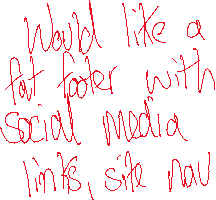 Would like a
fat footer with
social media
links, site nav